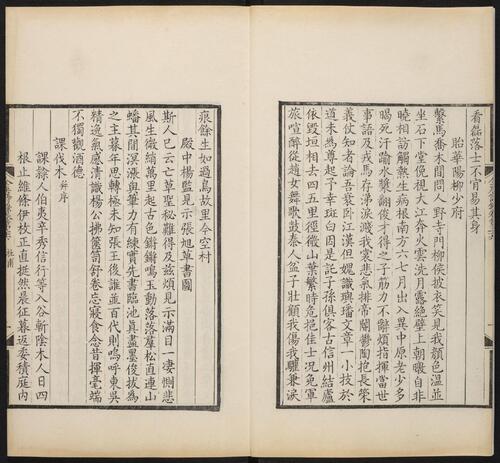 看磊落士不肯易其身
貽華陽柳少府
繫馬喬木間問人野寺門柳侯披衣笑見我顏色温並
坐石下堂俛視大江奔火雲洗月露絶壁上朝暾自非
曉相訪觸熱生病根南方六七月出入異中原老少多
暍死汗踰水漿翻俊才得之子筋力不辭煩指揮當世
事語及戎馬存涕淚濺我裳悲氣排帝閽鬱陶抱長策
義仗知者論吾衰卧江漢但媿識璵璠文章一小技於
道未爲尊起予幸斑白因是託子孫俱客古信州結廬
依毁垣相去四五里徑微山葉繁時危挹佳士况免軍
旅喧醉從趙女舞歌鼓秦人盆子壯顧我傷我驩兼淚
痕餘生如過鳥故里今空村
殿中楊監見示張旭草書圖
斯人已云亡草聖秘難得及兹煩見示滿目一凄惻悲
風生微綃萬里起古色鏘鏘鳴玉動落落羣松直連山
蟠其間溟漲與筆力有練實先書臨池真盡墨俊拔爲
之主暮年思轉極未知張王後誰並百代則嗚呼東吴
精逸氣感清識楊公拂篋笥舒卷忘寢食念昔揮毫端
不獨觀酒德
課伐木并序
課隸人伯夷辛秀信行等入谷斬陰木人日四
根止維條伊枚正直挺然晨征暮返委積庭内